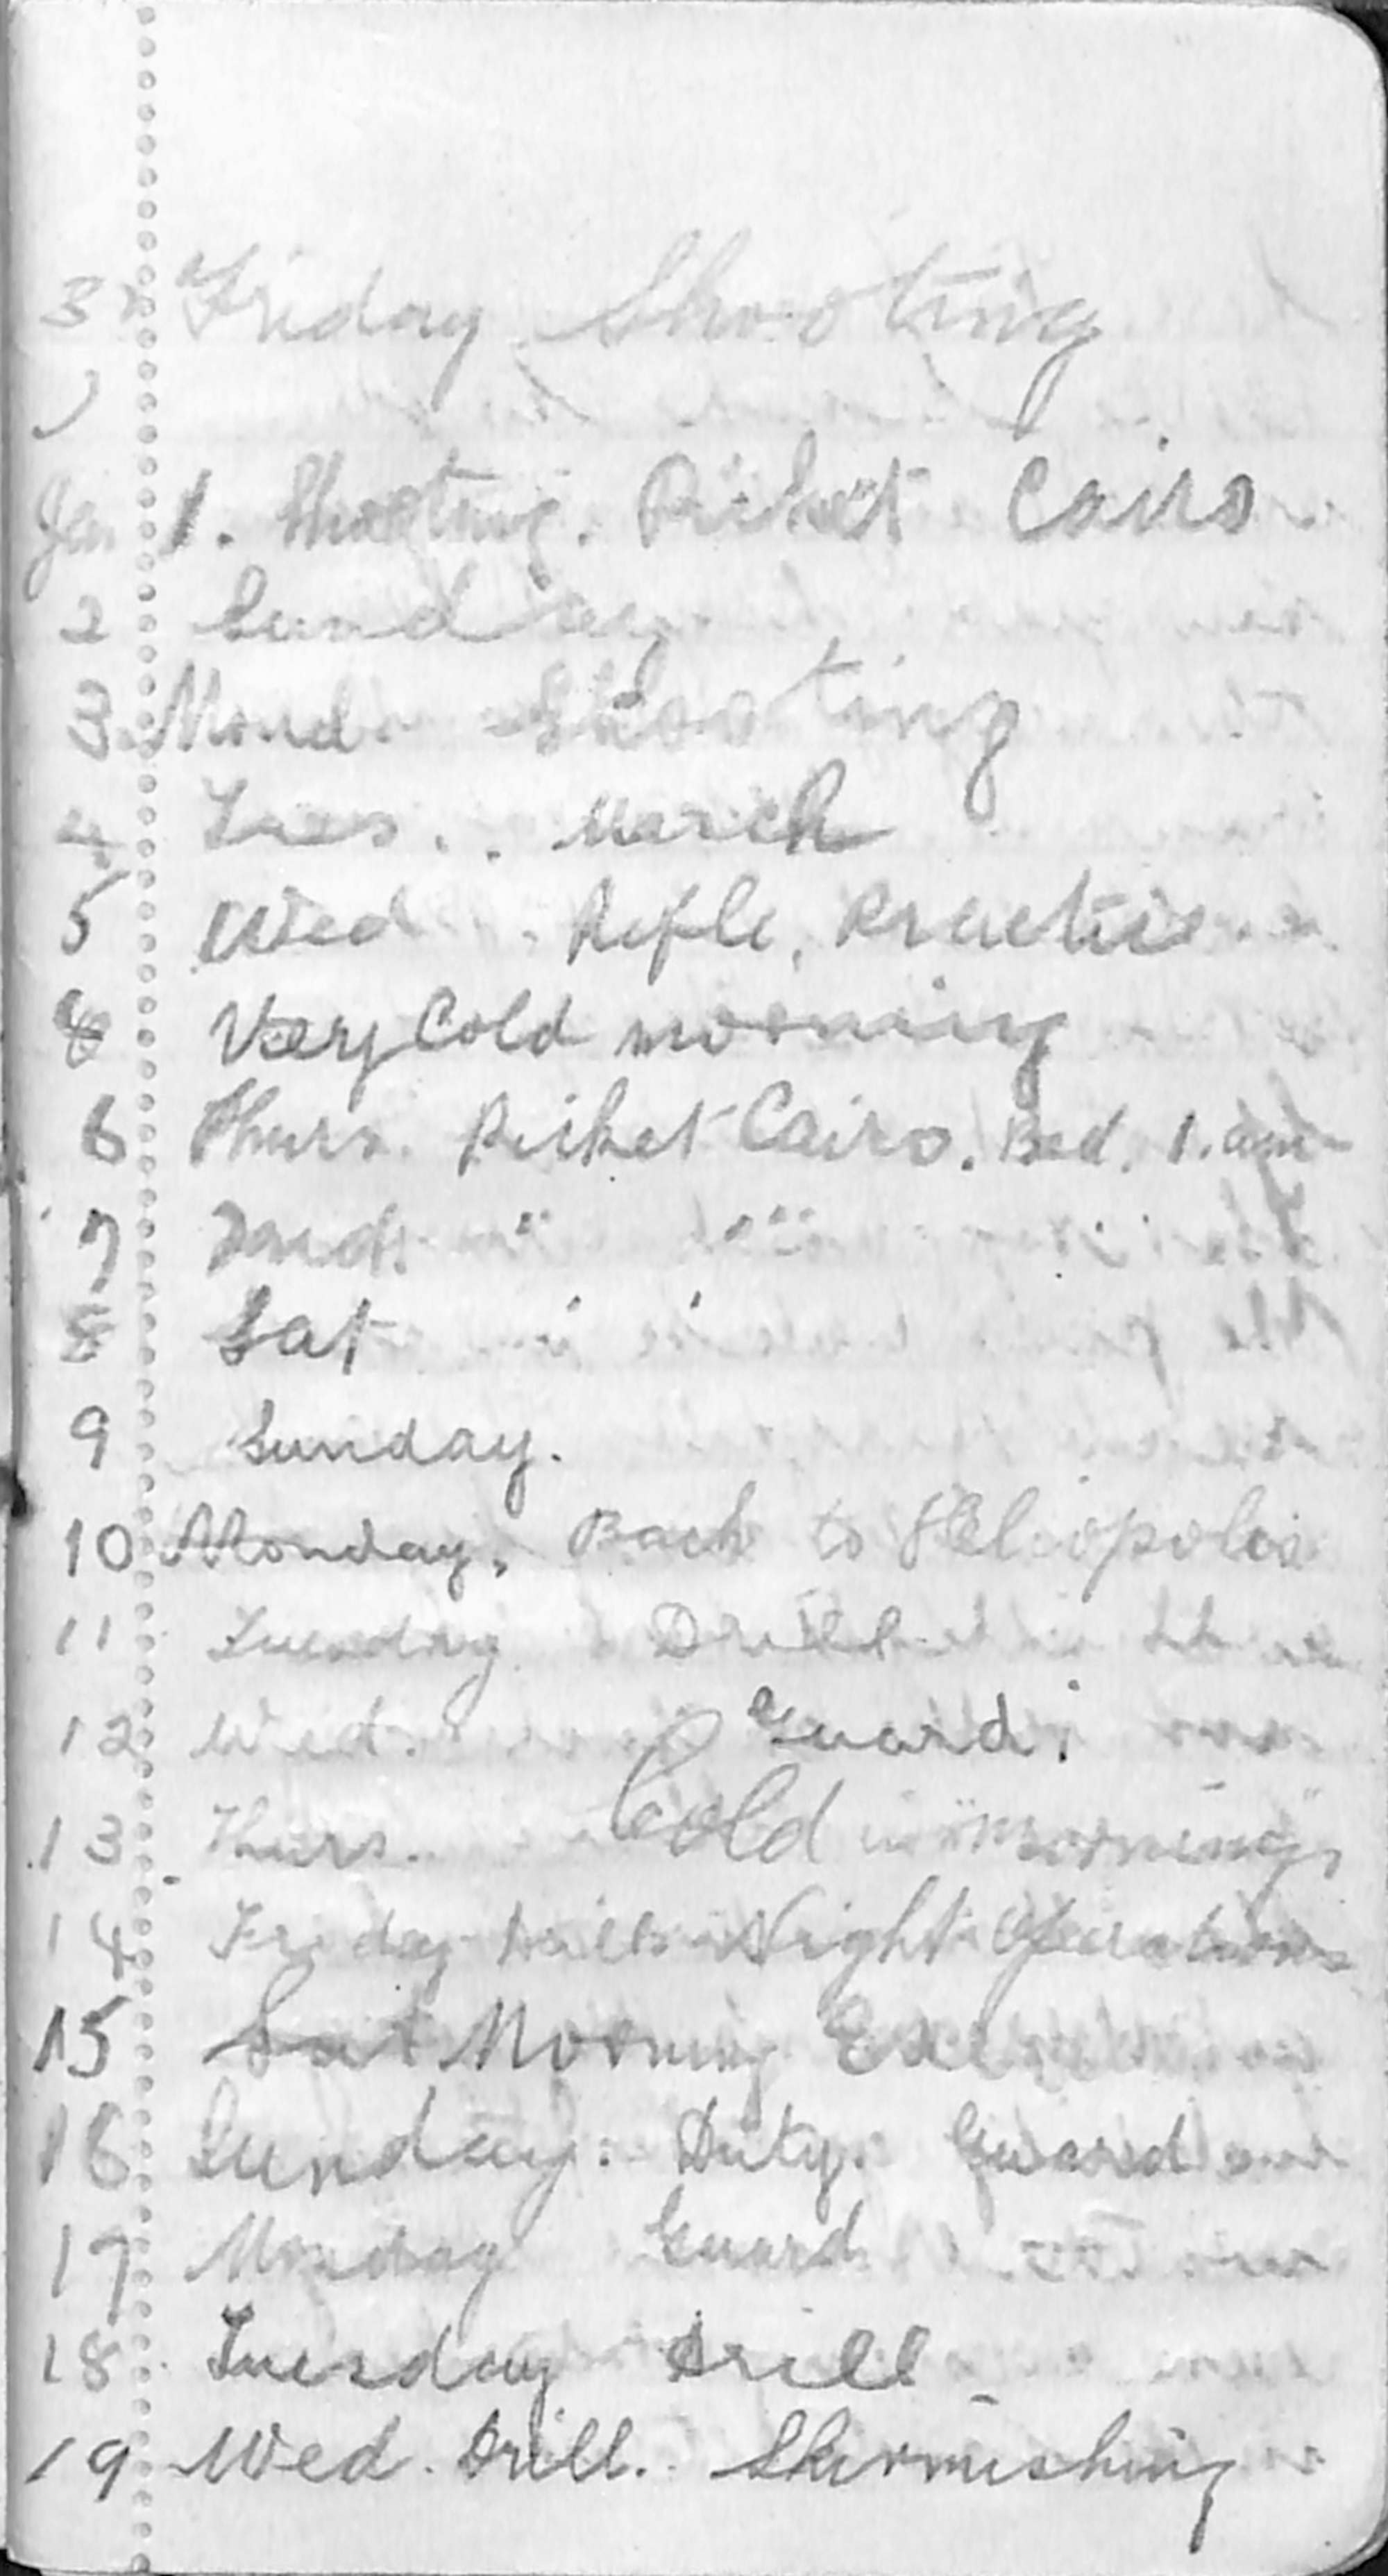 31 Friday Shooting
Jan 1. Shooting. Picket Cairo
2 Sunday
3. Mond. Shooting
4 Tues.. March
5 Wed. Rifle, Practis
Very Cold morning
6 Thurs. Picket Cairo. Bed. 1. am
7
8 Sat " "
9 Sunday.
10 Monday. Back to Heliopolis
11 Tuesday Drill
12 Wed. Guard.
13. Thurs. Cold morning
14 Friday Drill Night Operations
15 Sat Morning
16 Sunday. Duty. Guard
17 Monday Guard
18 Tuesday Drill
19 Wed. Drill. Skirmishing